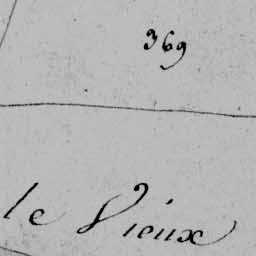 369
le Vieux